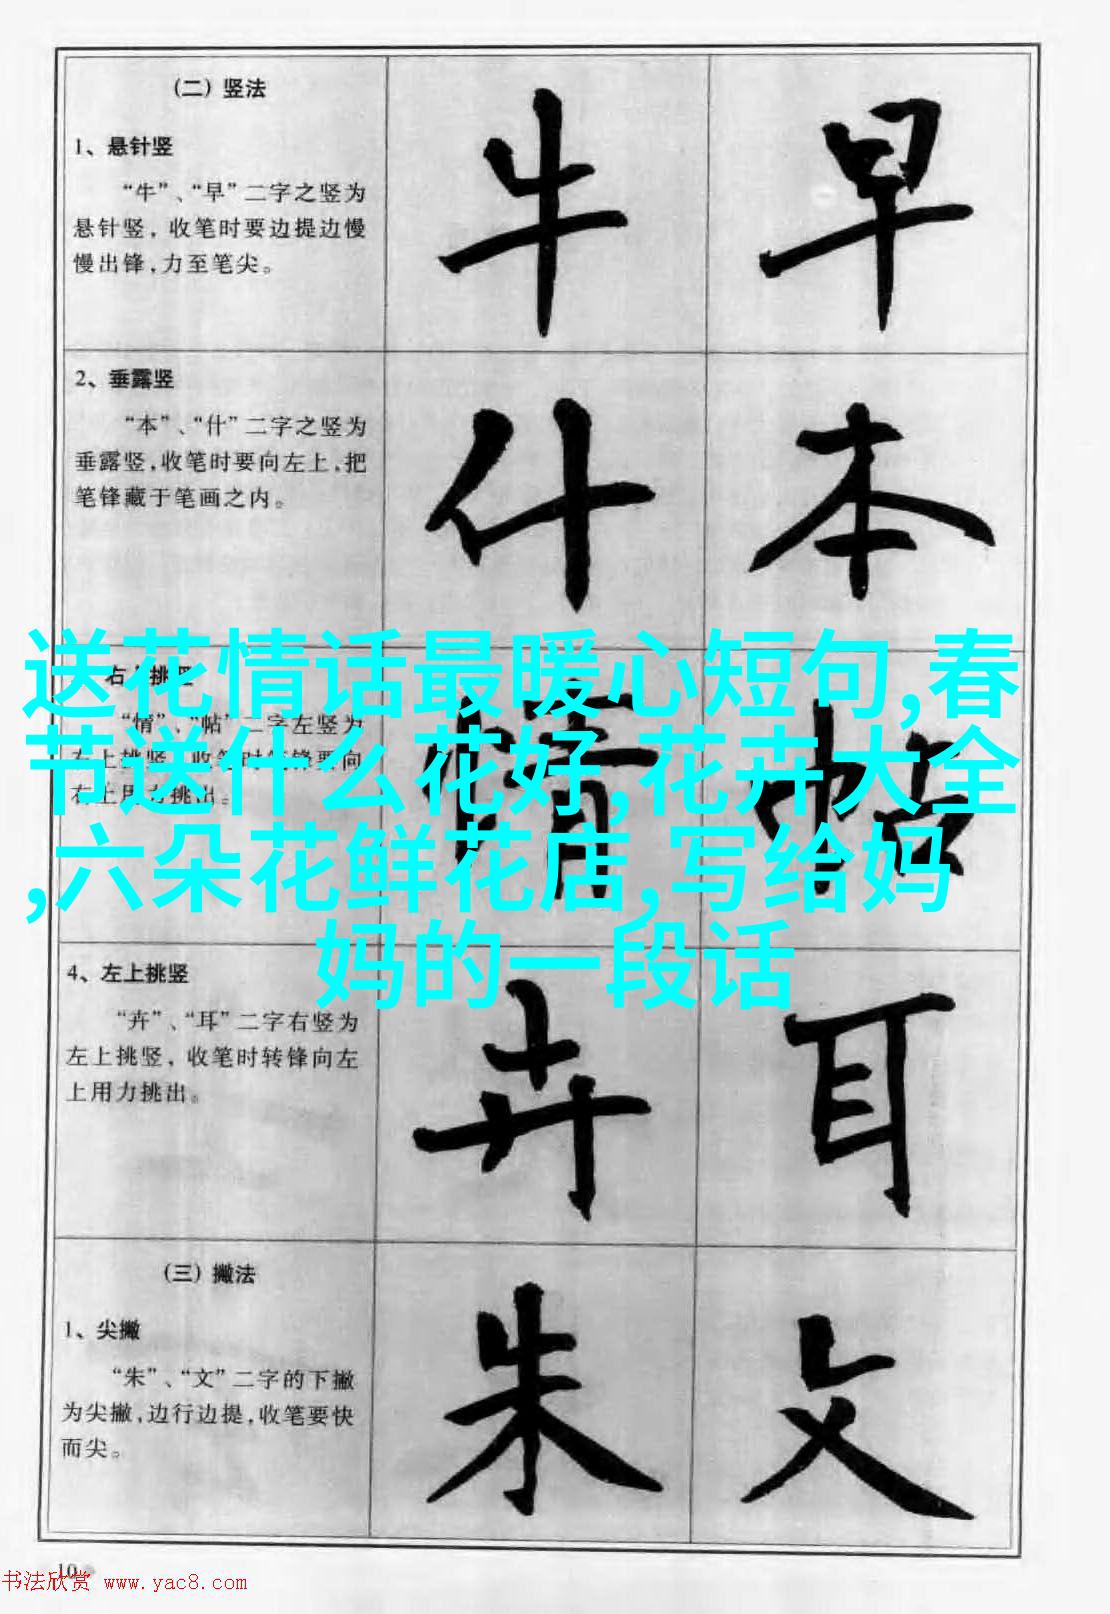 (二) 竖法
1、悬针竖
“牛”、“早”二字之竖为
悬针竖, 收笔时要边提边慢
慢出锋,力至笔尖。
牛 早
2、垂露竖
“本”、“什”二字之竖为
垂露竖,收笔时要向左上,把
笔锋藏于笔画之内。
什 本
送花情话最暖心短句,春
节送什么花好,花卉大全
,六朵花鲜花店,写给妈
妈的一段话
右 挑竖
“情”、“帖”二字左竖为
右上挑竖, 收笔时转锋要向
右上用力挑出。
情 帖
4、左上挑竖
“卉”、“耳”二字右竖为
左上挑竖, 收笔时转锋向左
上用力挑出。
卉 耳
(三) 撇法
1、尖撇
“朱”、“文”二字的下撇
为尖撇,边行边提,收笔要快
而尖。
朱 文
10
书法欣赏 www.yac8.com